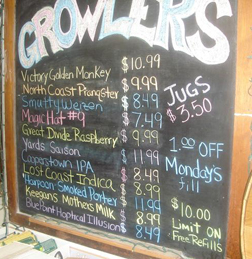 GROWLERS
Victory Golden Monkey $10.99
North Coast Prangster $9.99
Smuttyweizen $8.49
Magic Hat #9 $7.49
Great Divide Raspberry $9.99
Yards Saison $11.99
Cooperstown IPA $11.99
Lost Coast Indica $8.49
Harpoon Smoked Porter $8.99
Keegans Mothers Milk $11.99
BluePoint Hoptical Illusion $8.99
$8.49
JUGS
$3.50
1.00 OFF
Mondays
$10.00
Limit on
Free Refills